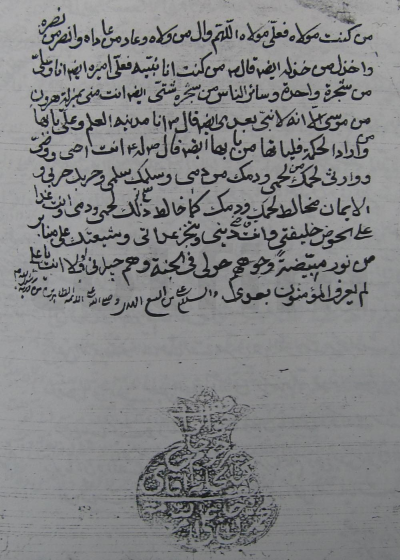 من كنت مولاه فعلي مولاه اللهم وال من والاه وعاد من عاداه وانصر من نصره
واخذل من خذله ايضه قال من كنت انا نبيه فعلي اميره ايضه انا وعلي
من شجرة واحدة وسائر الناس من شجرة شتى ايضه انت مني بمنزلة هرون
من موسى الا انه لا نبي بعدي ايضه قال انا مدينة العلم وعلي بابها
من اراد الحكمة فلياتها من بابها ايضه قال انت اخي ووصيي
ووارثي لحمك من لحمي ودمك من دمي وسلمك سلمي وحربك حربي و
الايمان مخالط لحمك ودمك كما خالط لحمي ودمي وانت غدا
على الحوض خليفتي وانت تقضي ديني وتنجز عداتي وشيعتك على منابر
من نور مبيضة وجوههم حولي في الجنة وهم جيراني ولولا انت يا علي
لم يعرف المؤمنون بعدي